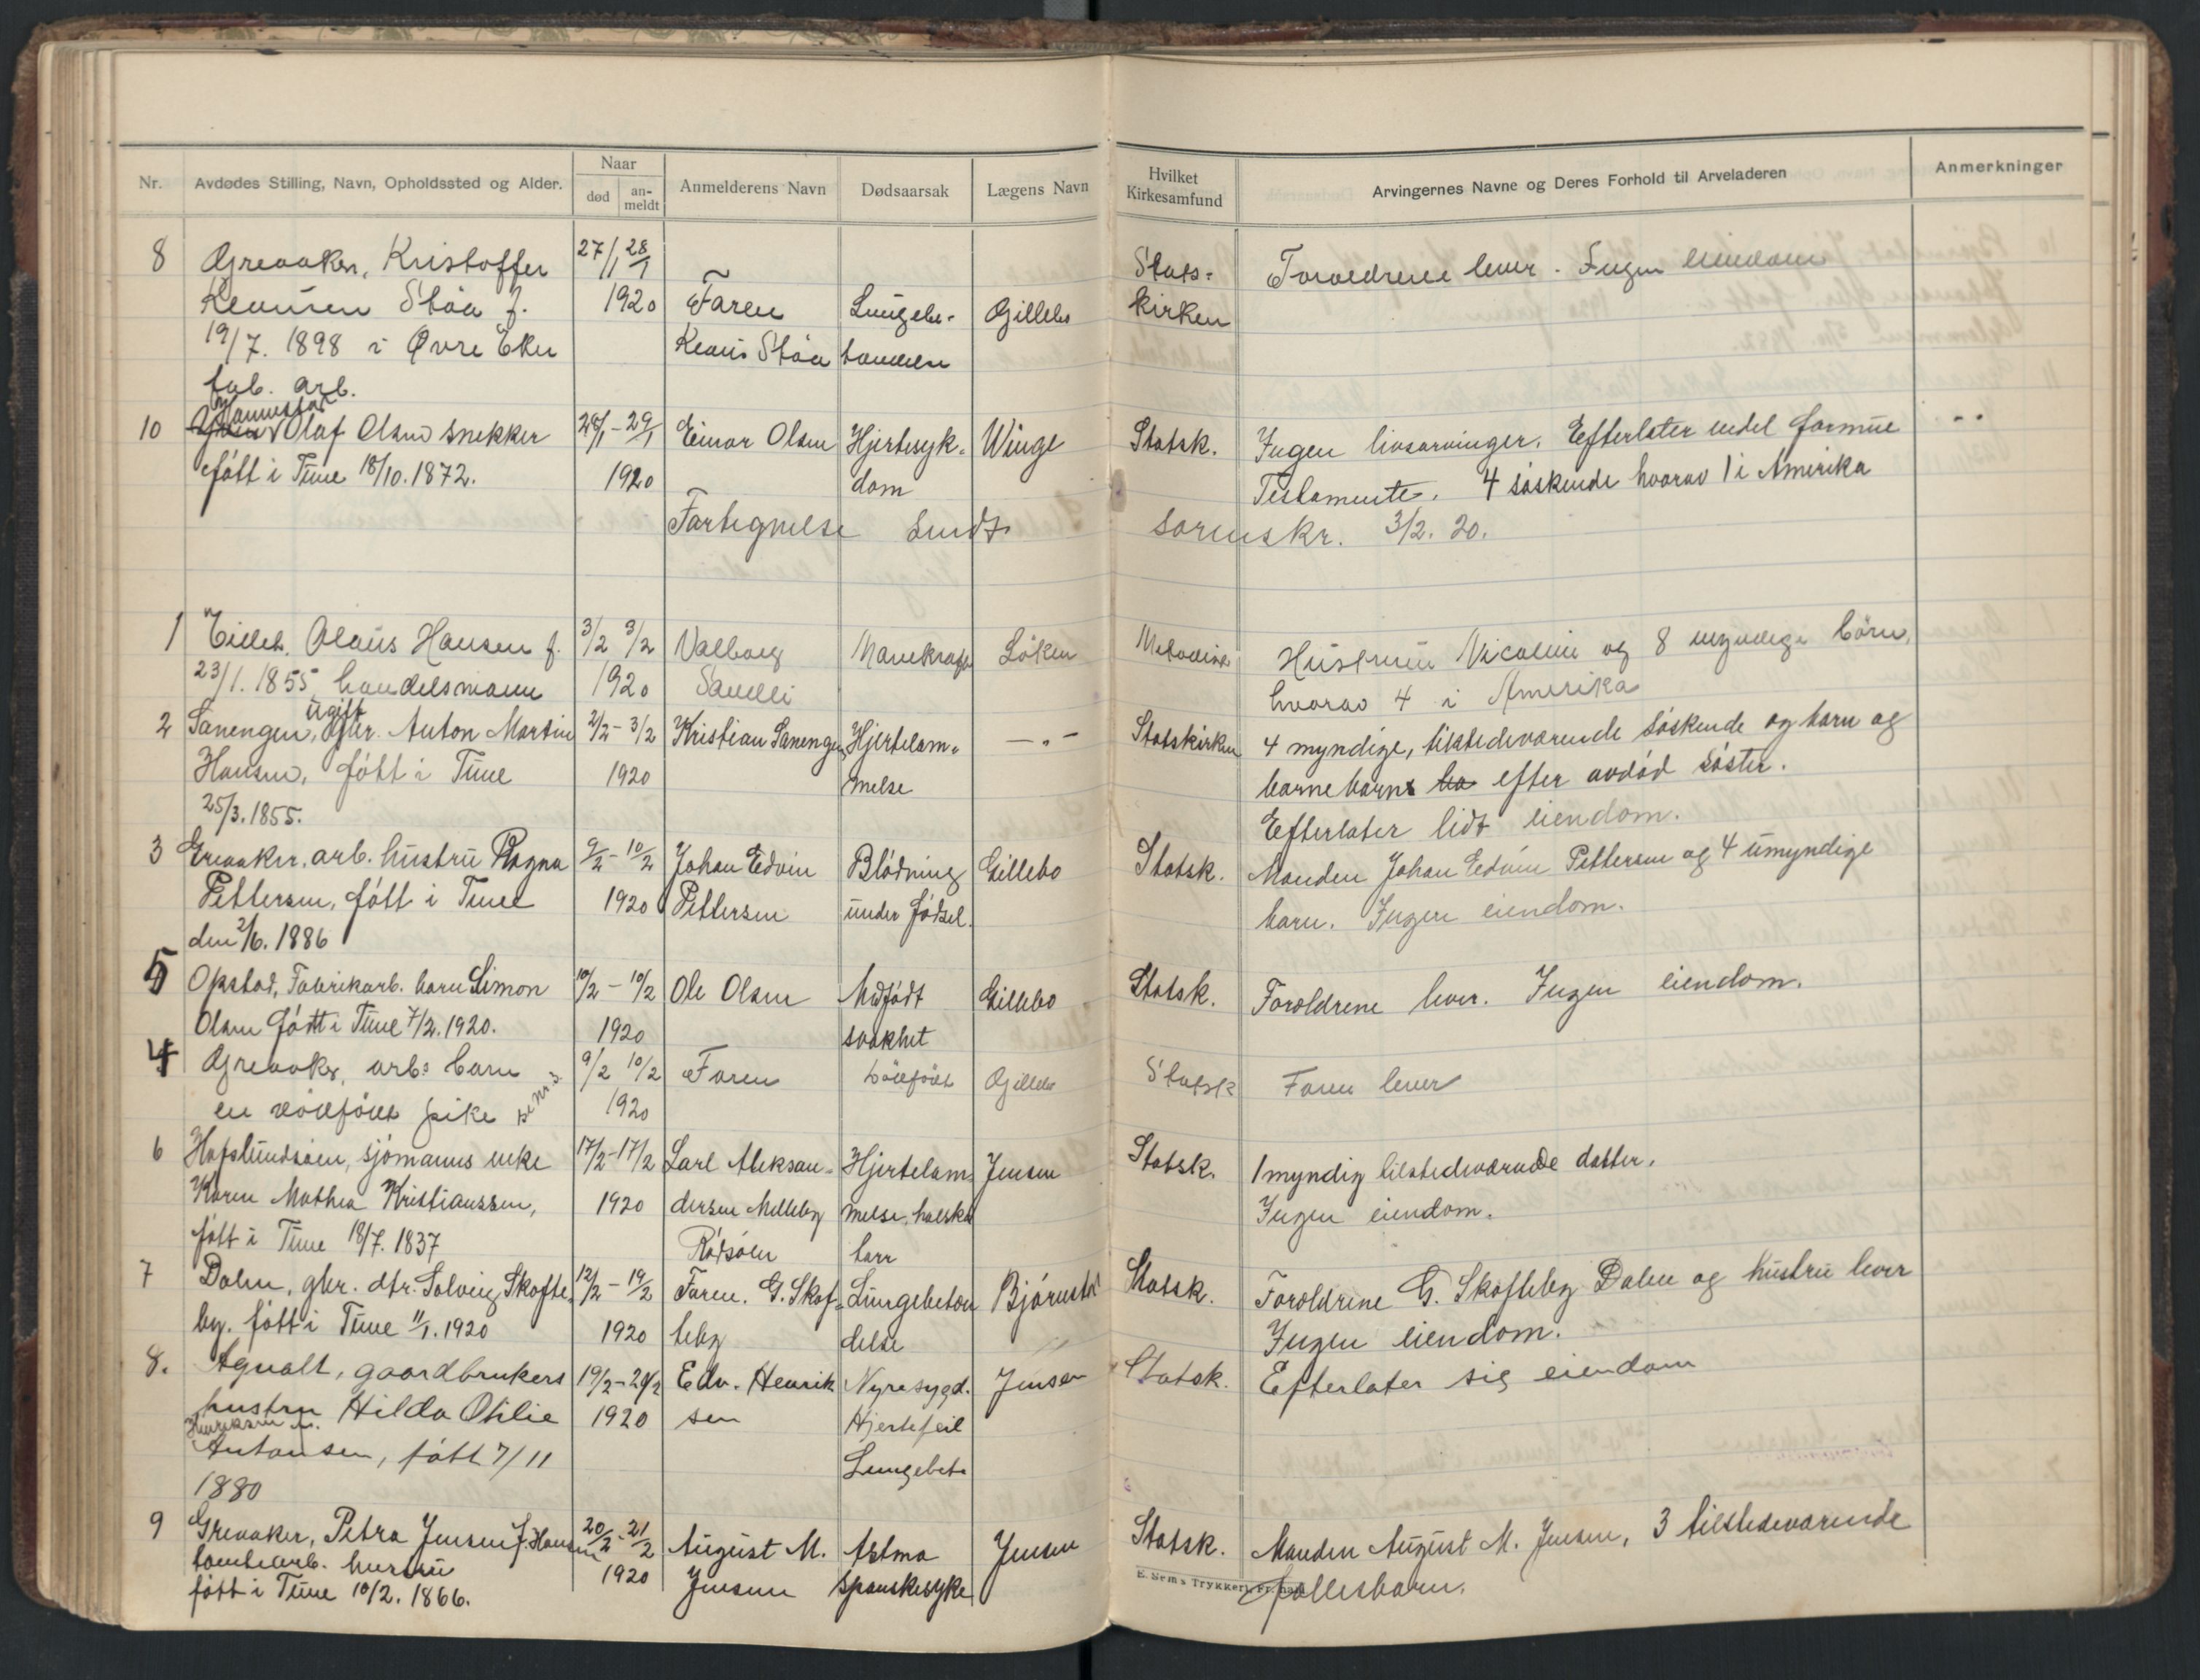 Nr. Avdødes Stilling, Navn, Opholdssted og Alder. Naar død an-meldt Anmelderens Navn Dødsaarsak Lægens Navn Hvilket Kirkesamfund Arvingernes Navne og Deres Forhold til Arveladeren Anmerkninger
8 Greaaker, Kristoffer 27/1 28/1 Stats- Foroeldrene lever. Ingen eiendom
Stöa f. 1920 Faren Lungebe- Gillebo kirken
19/7. 1898 i Øvre Eker Stöa tændelse
fab. arb.
Hannestad
10 Olaf Olsen snekker 28/1 - 29/1 Einar Olsen Hjertesyk- Winge Statsk. Ingen livsarvinger. Efterlater endel formue
født i Tune 18/10. 1872. 1920 dom Testamente. 4 søskende hvorav 1 i Amerika
Fortegnelse sendt sorenskr. 3/2. 20.
1 Olaus Hansen f. 3/2 3/2 Valborg Mavekraft Löken Metodist Hustruen Nicoline og 8 myndige börn,
23/1. 1855, handelsmann 1920 hvorav 4 i Amerika
ugift
2 Sanengen, Anton Martin 2/2 - 3/2 Kristian Sanengen Hjertelam- — " — Statskirken 4 myndige, tilstedeværende søskende og barn og
Hansen, født i Tune 1920 melse barnebarn efter avdød søster.
25/3. 1855. Efterlater lidt eiendom.
3 Greaaker, arb. hustru Ragna 9/2 - 10/2 Johan Edvin Blødning Gillebo Statsk. Manden Johan Edvin Pettersen og 4 umyndige
Pettersen, født i Tune 1920 Pettersen under fødsel. barn. Ingen eiendom.
den 2/6. 1886
5 Opstad, Fabrikarb. barn Simon 10/2 - 10/2 Ole Olsen Medfødt Gillebo Statsk. Foroldrene lever. Ingen eiendom.
Olsen født i Tune 7/2. 1920. 1920 svakhet
4 Greaaker, arb: barn 9/2 10/2 Faren Dödfödt Gillebo Statsk Faren lever
en dödfödt pike se Nr 3 1920
6 Hafslundsøen, sjømanns enke 17/2 - 17/2 Carl Aleksan- Hjertelam- Jensen Statsk. 1 myndig tilstedeværende datter.
Karen Mathea Kristianssen, 1920 dersen Melleby melse, halska Ingen eiendom.
født i Tune 18/7. 1837 Rødsøen tarr
7 Dalen, gbr. dtr. Solveig Skofte- 12/2 - 19/2 Faren. G. Skof- Lungebetæn Bjørnstad Statsk. Foroldrene G. Skofteby Dalen og hustru lever
by. født i Tune 11/1. 1920 1920 teby delse Ingen eiendom.
8. Agnalt, gaardbrukers 19/2 - 20/2 Edv. Henrik Nyresygd. Jensen Statsk. Efterlater sig eiendom
hustru Hilda Otilie 1920 sen Hjertefeil
Henriksen f.
Antonsen, født 7/11 Lungebet.
1880
9 Greaaker, Petra Jensen f. Hansen 20/2 - 21/2 August M. Astma Jensen Statsk. Manden August M. Jensen, 3 tilstedeværende
tomtearb. hustru 1920 Jensen spanskesyke fællesbarn.
født i Tune 10/2. 1866.
E. Sem's Trykkeri, Fr.hald